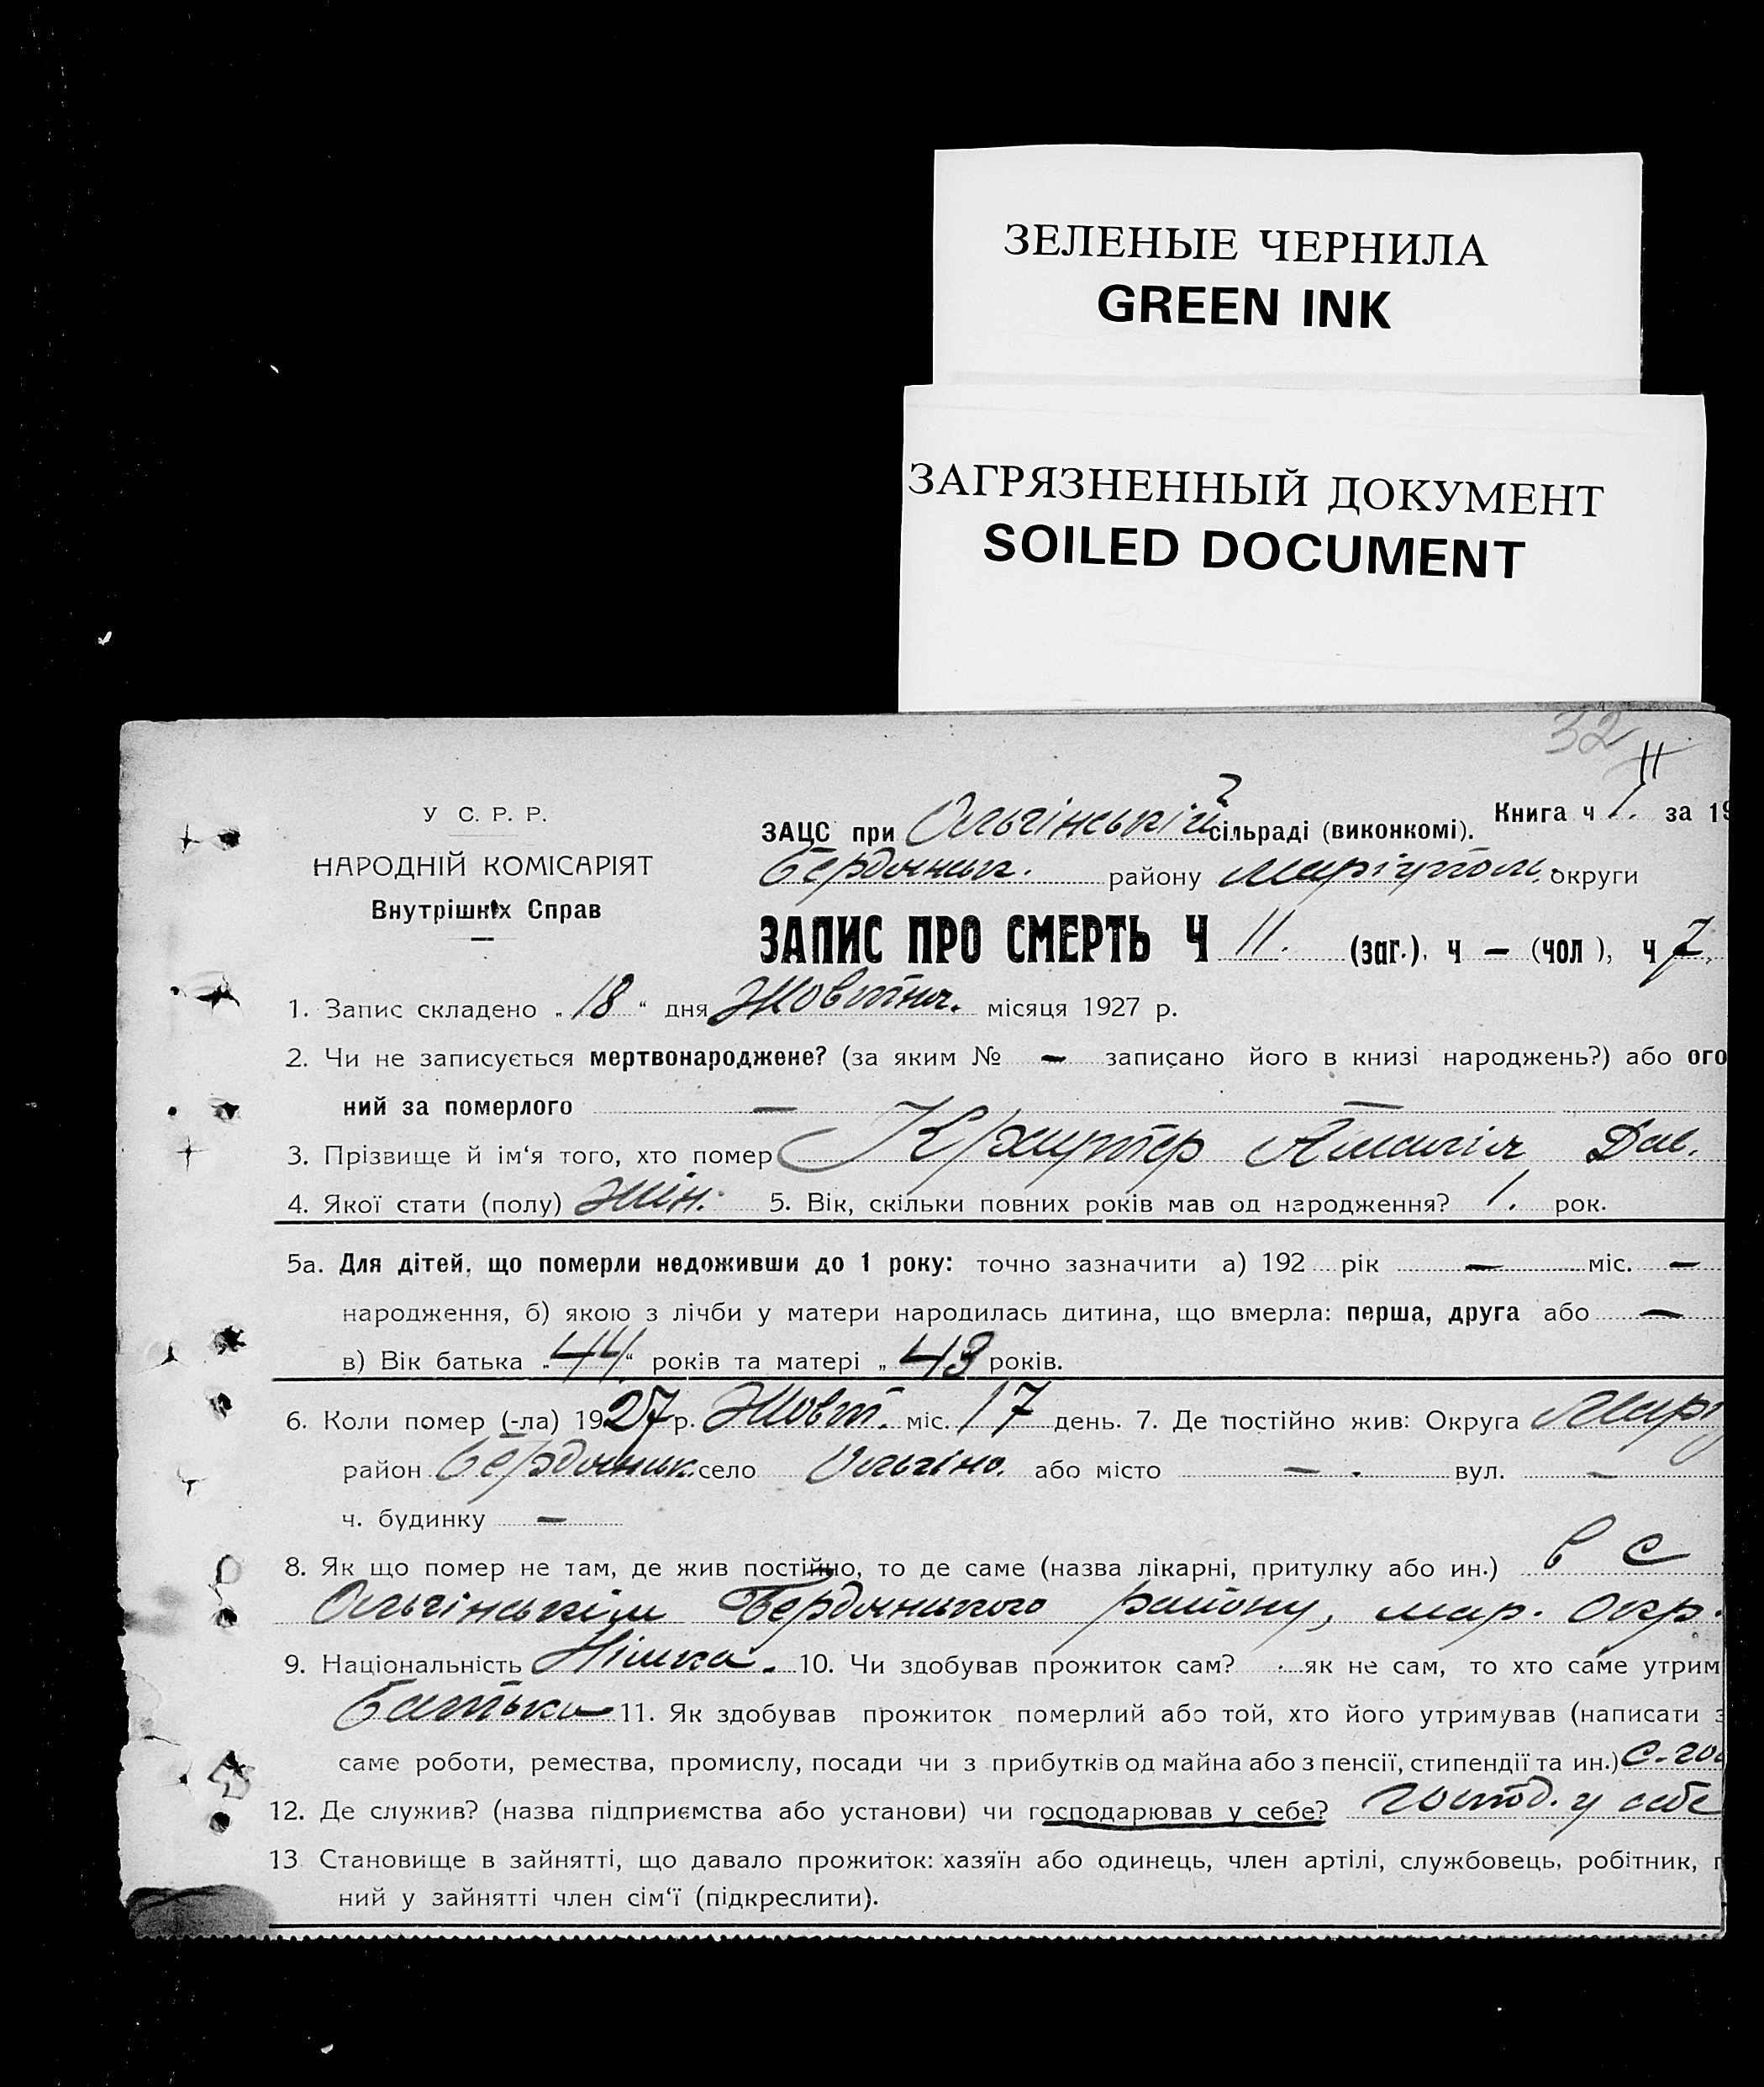 ЗЕЛЕНЫЕ ЧЕРНИЛА
GREEN INK
ЗАГРЯЗНЕННЫЙ ДОКУМЕНТ
SOILED DOCUMENT
32
11
У С. Р. Р.
НАРОДНІЙ КОМІСАРІЯТ
Внутрішніх Справ
ЗАЦС при Ольгінській сільраді (виконкомі). Книга ч 1. за 19
Бердянськ. району Маріупол. округи
ЗАПИС ПРО СМЕРТЬ Ч 11. (заг.), ч — (чол), ч 7.
1. Запис складено „18“ дня Жовтня. місяця 1927 р.
2. Чи не записується мертвонароджене? (за яким № — записано його в книзі народжень?) або ого
ний за померлого — —
3. Прізвище й ім‘я того, хто помер Краутер Амалія Дав.
4. Якої стати (полу) Жін. 5. Вік, скільки повних років мав од народження? 1. рок.
5а. Для дітей, що померли недоживши до 1 року: точно зазначити а) 192 рік — міс. —
народження, б) якою з лічби у матери народилась дитина, що вмерла: перша, друга або —
в) Вік батька „44“ років та матері „43 років.
6. Коли помер (-ла) 1927 р. Жовт. міс. 17 день. 7. Де постійно жив: Округа Марі
район Бердянськ. село Ольгіно. або місто — . вул. —
ч. будинку —
8. Як що помер не там, де жив постійно, то де саме (назва лікарні, притулку або ин.) в с
Ольгінськім Бердянського району, мар. окр.
9. Національність Німка. 10. Чи здобував прожиток сам? як не сам, то хто саме утрим
батько 11. Як здобував прожиток померлий або той, хто його утримував (написати з
саме роботи, ремества, промислу, посади чи з прибутків од майна або з пенсії, стипендії та ин.) С-гос
12. Де служив? (назва підприємства або установи) чи господарював у себе? господ. у себе
13 Становище в зайнятті, що давало прожиток: хазяїн або одинець, член артілі, службовець, робітник, п
ний у зайнятті член сім‘ї (підкреслити).